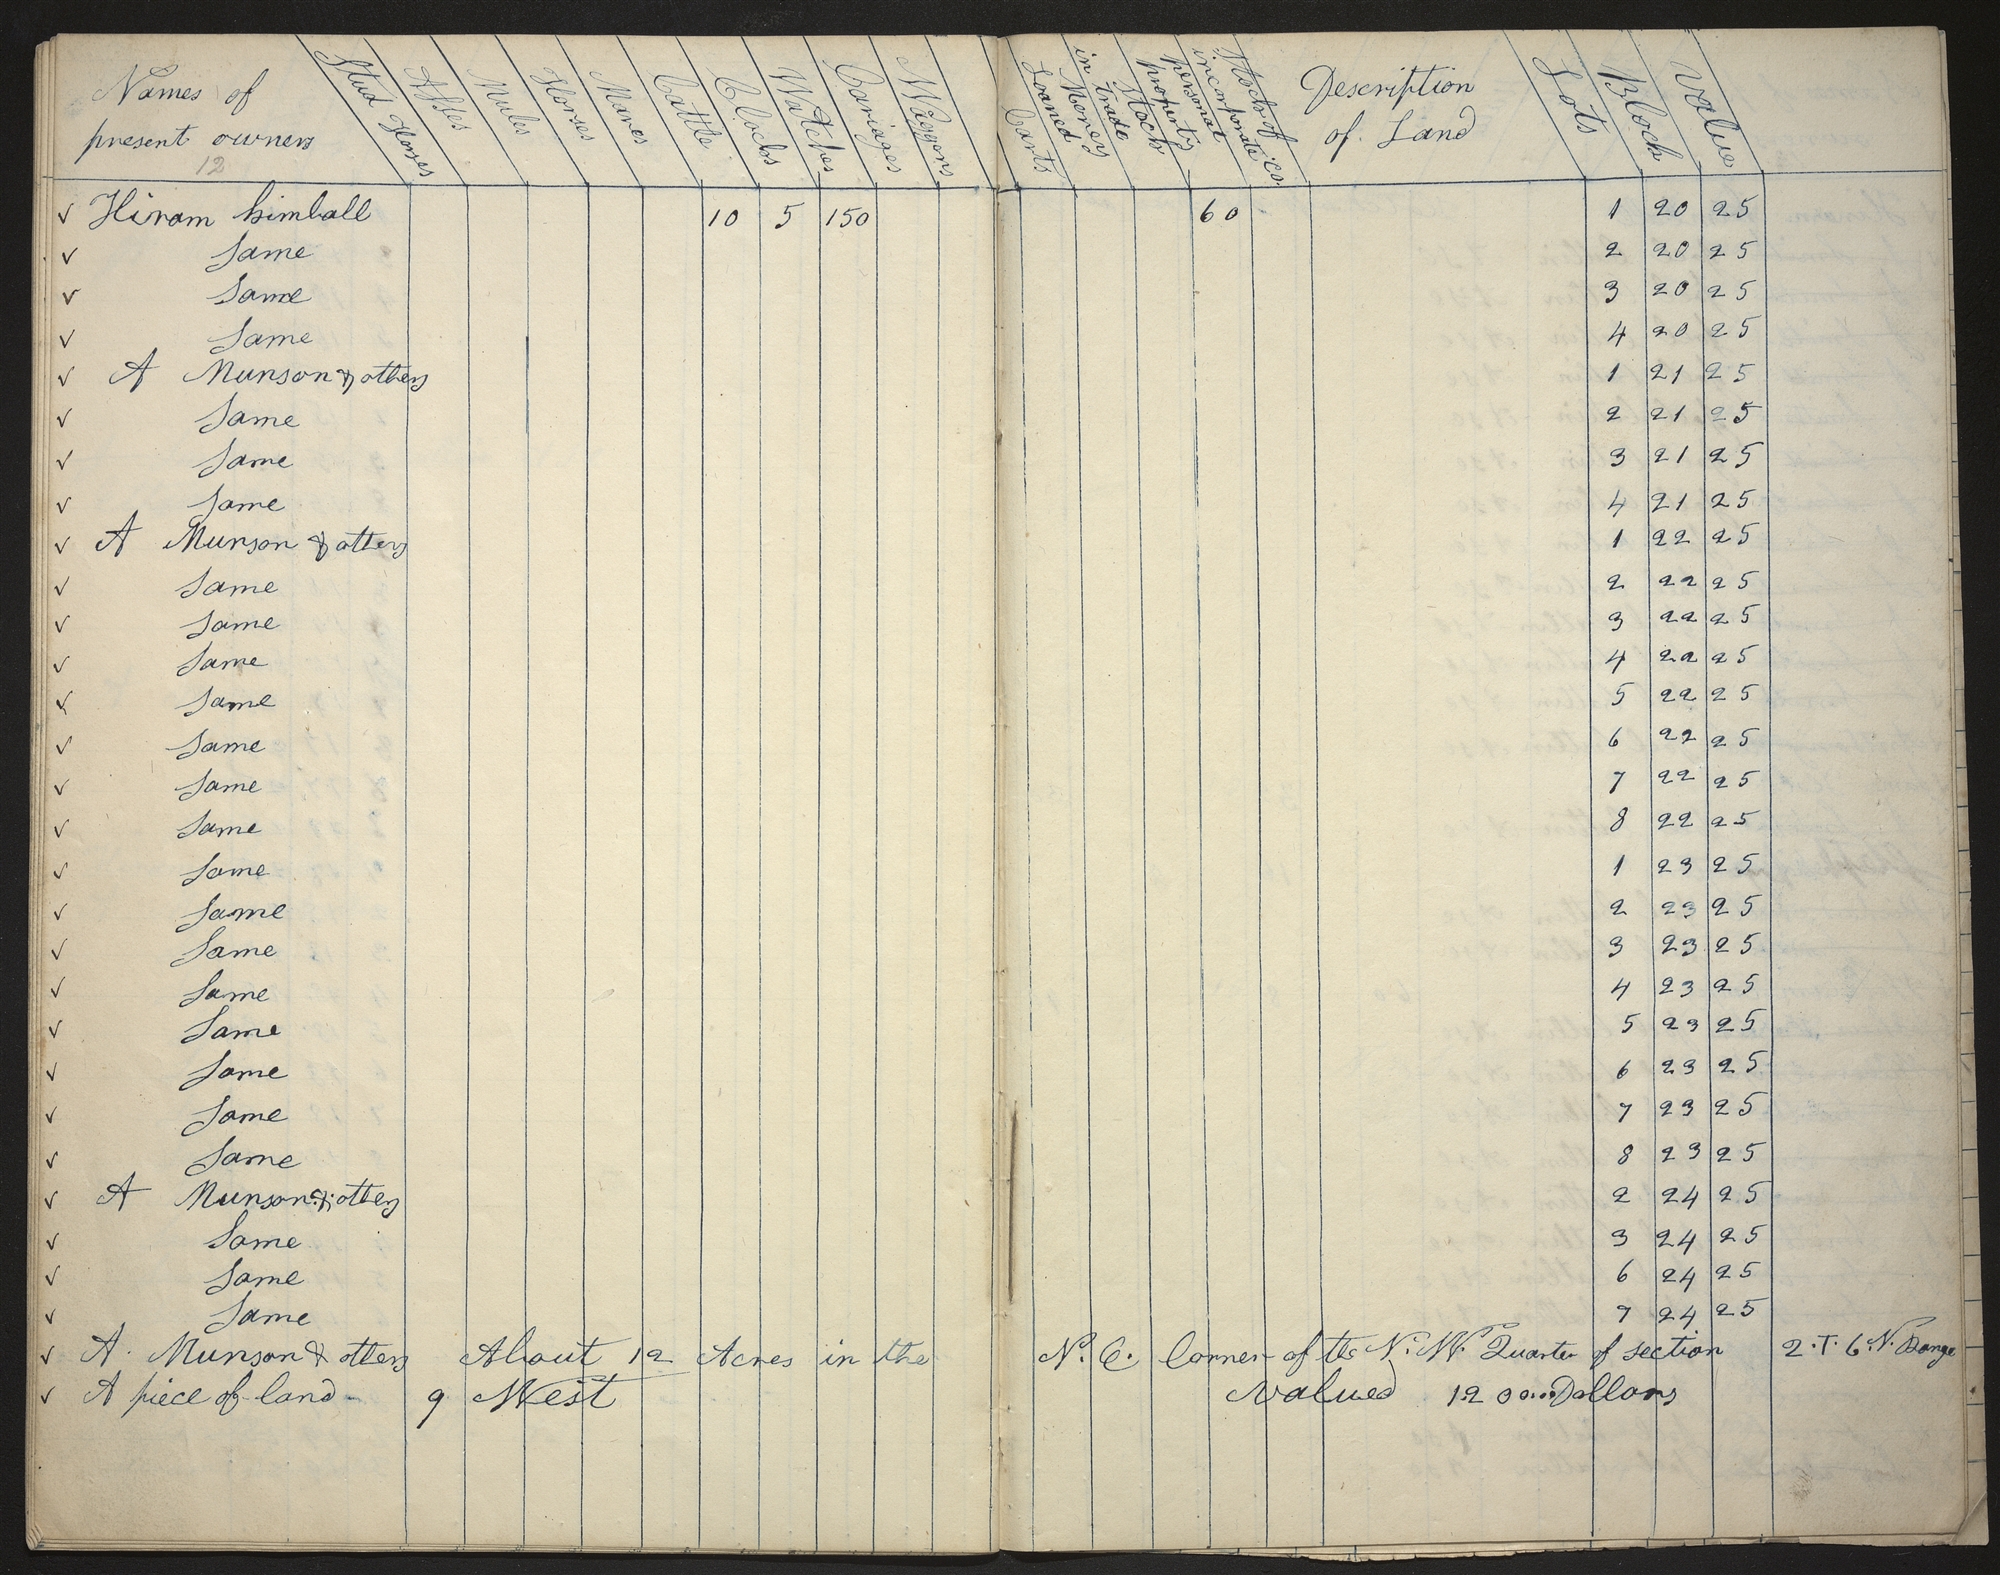 Names of present owners
12
Stud Horses
Asses
Mules
Horses
Mares
Cattle
Clocks
Watches
Cariages
Waggons
Carts
Loaned Money
in trade
Stock
personal property
Stock of incorporate Co.
Description of Land
Lots
Block
Value
✓ Hiram kimball 10 5 150 60 1 20 25
✓ Same 2 20 25
✓ Same 3 20 25
✓ Same 4 20 25
✓ A Munson & others 1 21 25
✓ Same 2 21 25
✓ Same 3 21 25
✓ Same 4 21 25
✓ A Munson & others 1 22 25
✓ Same 2 22 25
✓ Same 3 22 25
✓ Same 4 22 25
✓ Same 5 22 25
✓ Same 6 22 25
✓ Same 7 22 25
✓ Same 8 22 25
✓ Same 1 23 25
✓ Same 2 23 25
✓ Same 3 23 25
✓ Same 4 23 25
✓ Same 5 23 25
✓ Same 6 23 25
✓ Same 7 23 25
✓ Same 8 23 25
✓ A Munson & others 2 24 25
✓ Same 3 24 25
✓ Same 6 24 25
✓ Same 7 24 25
✓ A. Munson & others About 12 Acres in the N. E. Corner of the N. W. Quarter of section 2. T. 6. N. Range
✓ A piece of land 9 West Valued 1200 Dollars